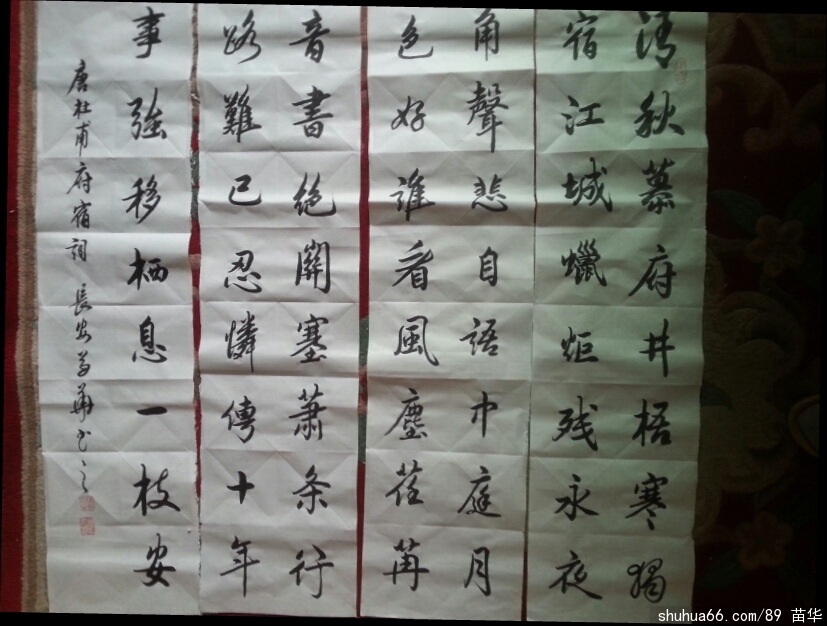 清秋慕府井梧寒獨
宿江城蠟炬残永夜
角聲悲自語中庭月
色好誰看風塵荏苒
音書絶關塞蕭条行
路難已忍憐傳十年
事強移栖息一枝安
唐杜甫府宿詞 長安苗華书之
shuhua66.com/89 苗华